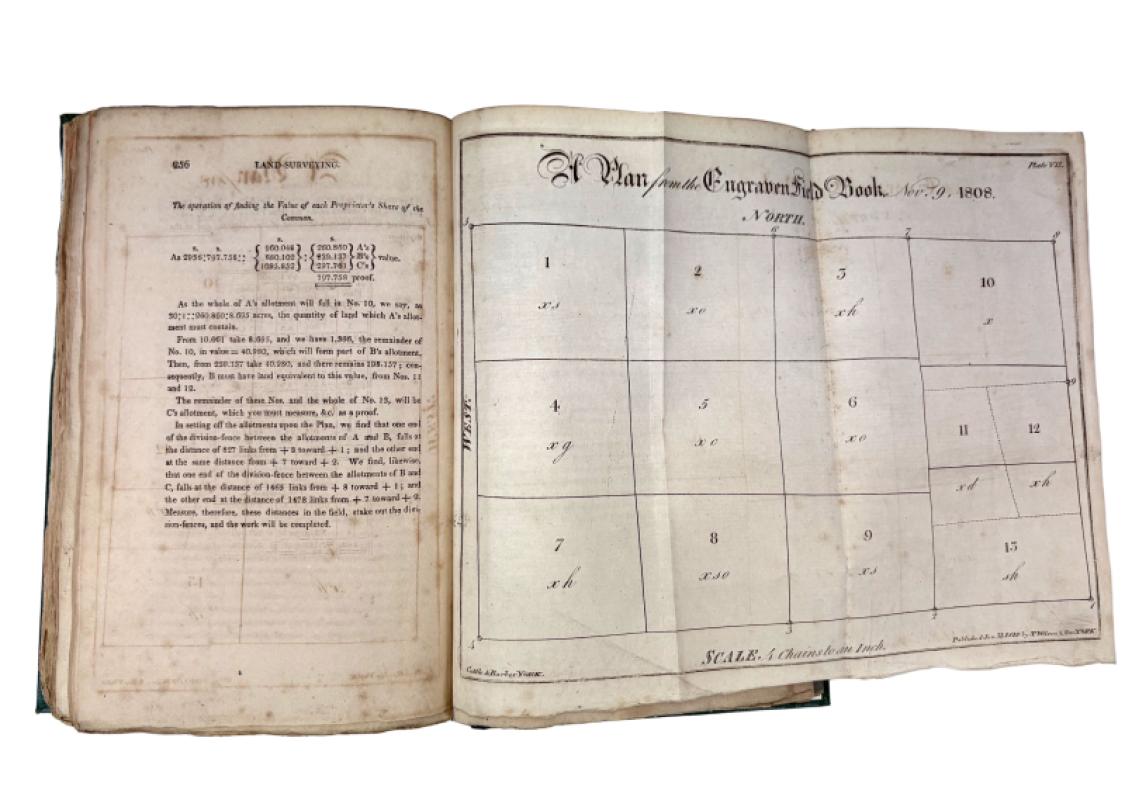 256
LAND-SURVEYING.
The operation of finding the Value of each Proprietor's Share of the
Common.
s. s. s. s.
As 2956:797.758:: { 960.048 : { 260.860 } A's
} B's } value.
C's
797.758 proof.
As the whole of A's allotment will fall in No. 10, we say, as
30:1::260.860:8.695 acres, the quantity of land which A's allot-
ment must contain.
From 10.061 take 8.695, and we have 1,366, the remainder of
No. 10, in value = 40.980, which will form part of B's allotment.
Then, from 239.137 take 40.980, and there remains 198.157; con-
sequently, B must have land equivalent to this value, from Nos. 11
and 12.
The remainder of these Nos. and the whole of No. 13, will be
C's allotment, which you must measure, &c. as a proof.
In setting off the allotments upon the Plan, we find that one end
of the division-fence between the allotments of A and B, falls at
the distance of 827 links from + 8 toward + 1; and the other end
at the same distance from + 7 toward + 2. We find, likewise,
that one end of the division-fence between the allotments of B and
C, falls at the distance of 1465 links from + 8 toward + 1; and
the other end at the distance of 1478 links from + 7 toward + 2.
Measure, therefore, these distances in the field, stake out the divi-
sion-fences, and the work will be completed.
Plate VII.
A Plan from the Engraven Field Book. Nov. 9, 1808.
NORTH.
5
6
7
8
1
xs
2
xo
3
xh
10
x
WEST.
9
4
xg
5
xo
6
xo
11
12
xd
xh
7
xh
8
xso
9
xs
13
sh
4
3
2
1
SCALE 4 Chains to an Inch.